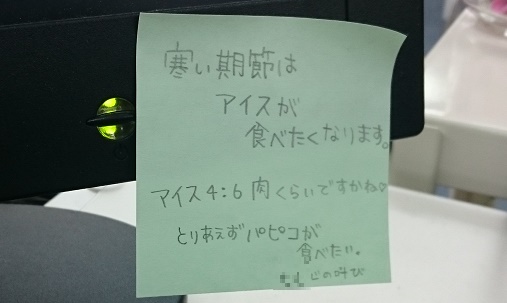 寒い期節は
アイスが
食べたくなります。
アイス4:6肉くらいですかね♡
とりあえずパピコが
食べたい。
心の叫び